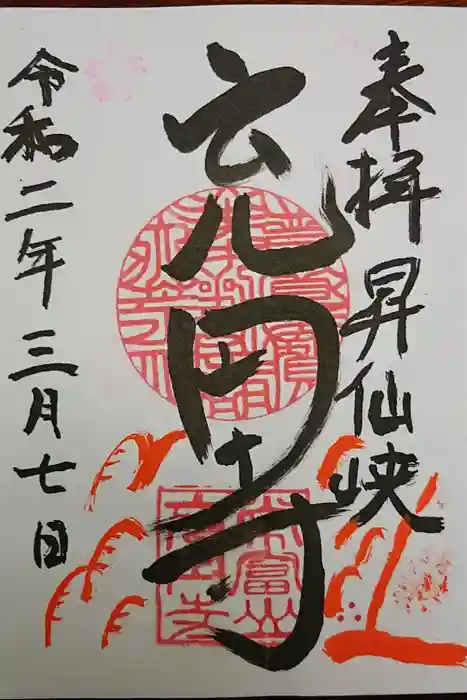 奉拝 昇仙峡
充円寺
令和二年三月七日